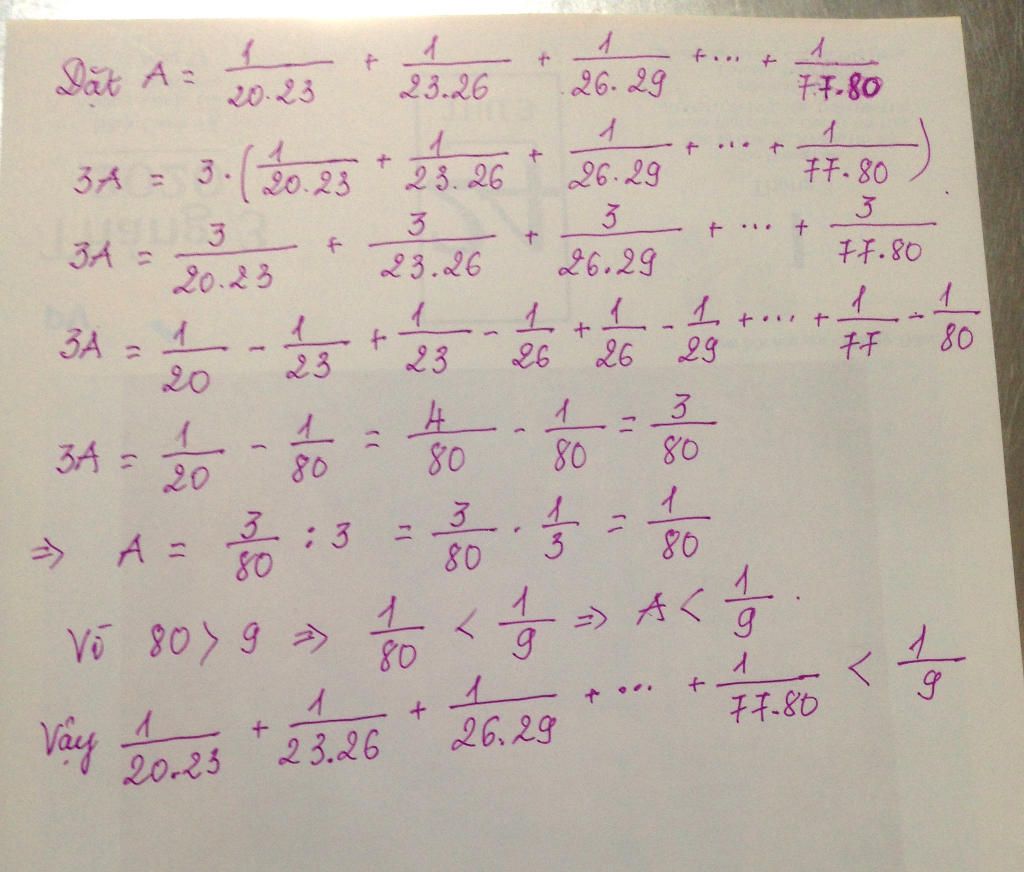 Đặt A = 1/20.23 + 1/23.26 + 1/26.29 + ... + 1/77.80
3A = 3.(1/20.23 + 1/23.26 + 1/26.29 + ... + 1/77.80)
3A = 3/20.23 + 3/23.26 + 3/26.29 + ... + 3/77.80
3A = 1/20 - 1/23 + 1/23 - 1/26 + 1/26 - 1/29 + ... + 1/77 - 1/80
3A = 1/20 - 1/80 = 4/80 - 1/80 = 3/80
⇒ A = 3/80 : 3 = 3/80 . 1/3 = 1/80
Vì 80 > 9 ⇒ 1/80 < 1/9 ⇒ A < 1/9.
Vậy 1/20.23 + 1/23.26 + 1/26.29 + ... + 1/77.80 < 1/9